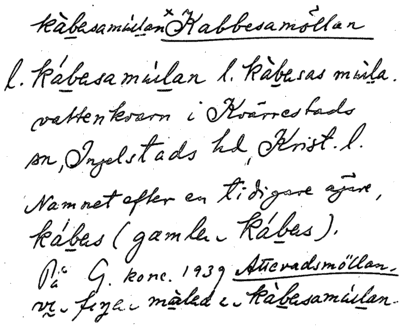 kàbesamúilan × Kabbesamöllan
l. kábesamúilan l. kàbesas múila.
vattenkvarn i Kvärrestads
sn, Ingelstads hd, Krist. l.
Namnet efter en tidigare ägare,
kábes (gamle kábes).
På G. konc. 1939 Attusradsmöllan.
vi fɩɳa màlad e kàbesamúilan.